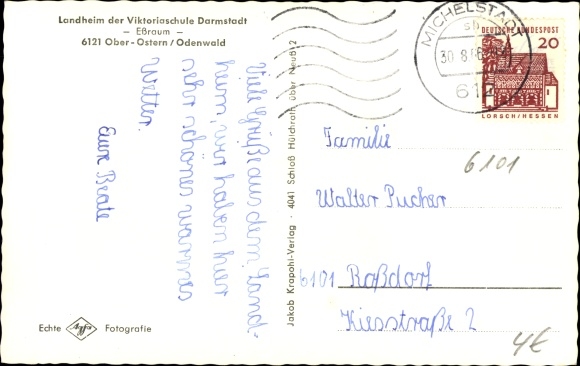 Landheim der Viktoriaschule Darmstadt
— Eßraum —
6121 Ober-Ostern / Odenwald
Viele Grüße aus dem Land-
heim, wir haben hier
sehr schönes warmes
Wetter.
Eure Beate
Echte Agfa Fotografie
Jakob Krapohl-Verlag · 4041 Schloß Hülchrath über Neuß 2
MICHELSTADT
sb
30.8.
612
DEUTSCHE BUNDESPOST
20
LORSCH/HESSEN
Familie
6101
Walter Pucher
6101 Roßdorf
Kiesstraße 2
4€